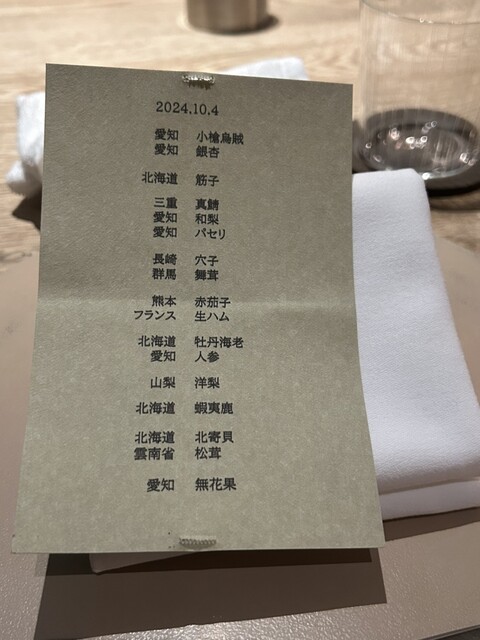 2024.10.4
愛知 小槍烏賊
愛知 銀杏
北海道 筋子
三重 真鯖
愛知 和梨
愛知 パセリ
長崎 穴子
群馬 舞茸
熊本 赤茄子
フランス 生ハム
北海道 牡丹海老
愛知 人参
山梨 洋梨
北海道 蝦夷鹿
北海道 北寄貝
雲南省 松茸
愛知 無花果